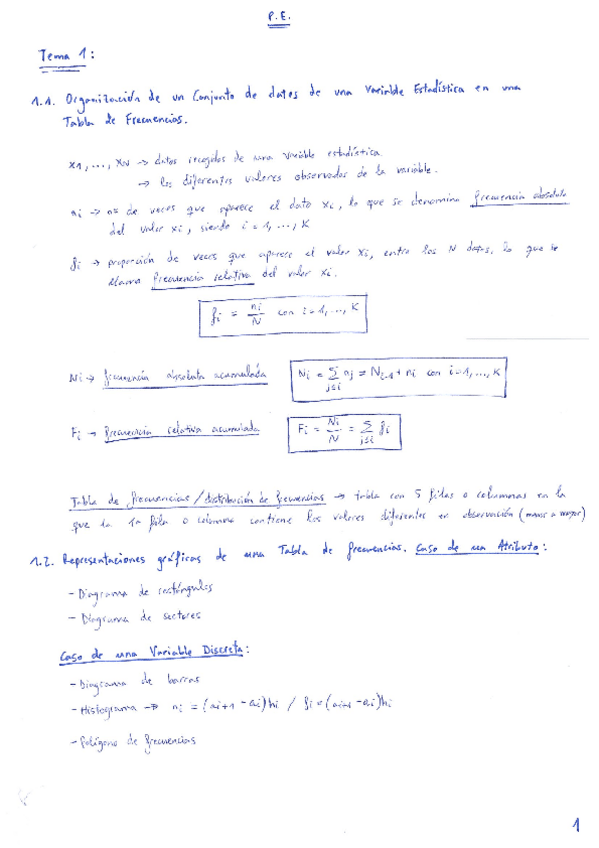 P.E.
Tema 1:
1.1. Organización de un Conjunto de datos de una Variable Estadística en una
Tabla de Frecuencias.
x1, ..., xN → datos recogidos de una variable estadística
→ los diferentes valores observados de la variable.
ni → nº de veces que aparece el dato xi, lo que se denomina frecuencia absoluta
del valor xi, siendo i = 1, ..., K
fi → proporción de veces que aparece el valor xi, entre los N datos, lo que se
llama frecuencia relativa del valor xi.
fi = ni/N con i = 1, ..., K
Ni → frecuencia absoluta acumulada
Ni = Σ j≤i nj = Ni-1 + ni con i=1, ..., K
Fi → frecuencia relativa acumulada
Fi = Ni/N = Σ j≤i fi
Tabla de frecuencias/distribución de frecuencias → tabla con 5 filas o columnas en la
que la 1ª fila o columna contiene los valores diferentes en observación (menor a mayor)
1.2. Representaciones gráficas de una Tabla de frecuencias. Caso de un Atributo:
- Diagrama de rectángulos
- Diagrama de sectores
Caso de una Variable Discreta:
- Diagrama de barras
- Histograma → ni = (ai+1 - ai)hi / fi = (ai+1 - ai)hi
- Polígono de frecuencias
1